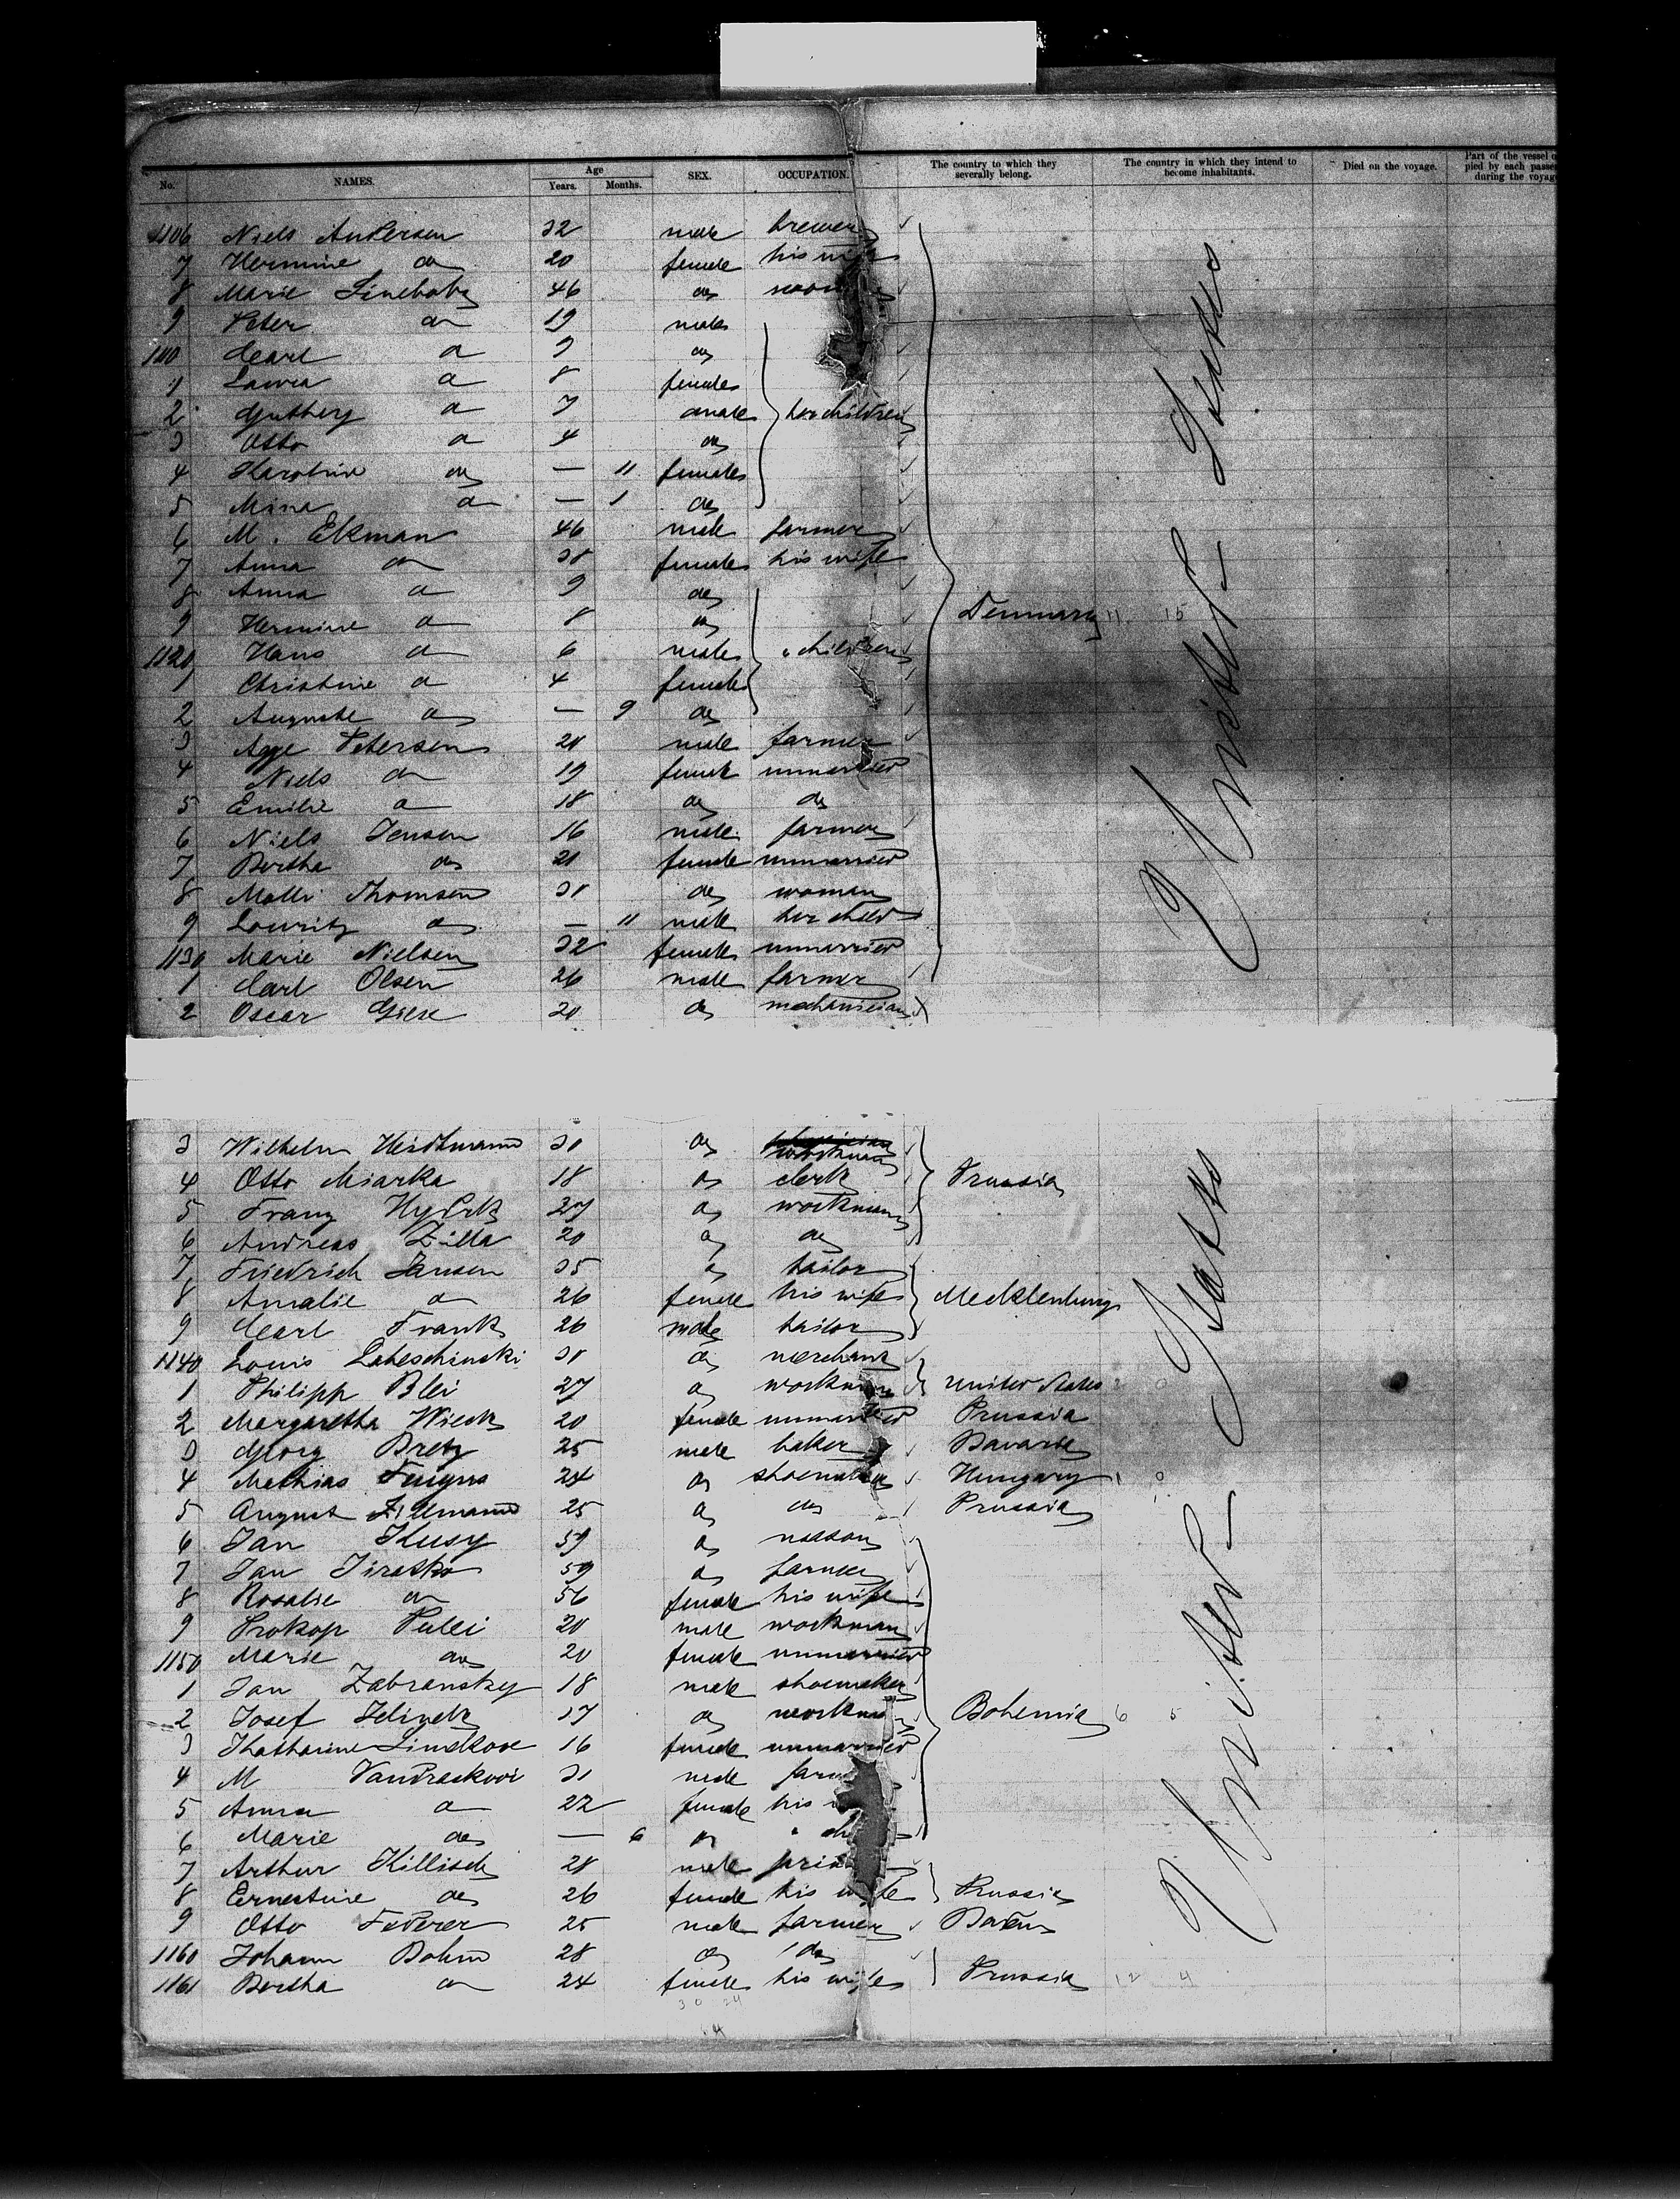 No. NAMES. Age Years. Months. SEX. OCCUPATION. The country to which they severally belong. The country in which they intend to become inhabitants. Died on the voyage. Part of the vessel pied by each during the
1106 Niels Andersen 32 male brewer
7 Hermine do 20 female his wife
8 Marie 46 do
9 Peter do 19 male
1110 Carl do 9 do
1 Laura do 8 female
2 do 7 male her children
3 Otto do 4 do
4 Karoline do — 11 female
5 Mina do — 1 do
6 M. Ekman 46 male farmer
7 Anna do 38 female his wife
8 Anna do 9 do
9 Hermine do 8 do Denmark 11 15
1120 Hans do 6 male " children
1 Christine do 4 female
2 Auguste do — 9 do
3 Age Petersen 28 male farmer
4 Niels do 19 female unmarried
5 Emilie do 18 do do
6 Niels Jensen 16 male farmer
7 Bertha do 21 female unmarried
8 Thomsen do woman
9 Lauritz do — 11 male her child
1130 Marie Nielsen 32 female unmarried
1 Carl Olsen 26 male farmer
2 Oscar do mechanician
United States
3 Wilhelm do workman
4 Otto Miarka 18 do clerk Prussia
5 Franz 27 do workman
6 Andreas Zilla 20 do do
7 Friedrich Jansen 35 do tailor
8 Amalie do 26 female his wife Mecklenburg
9 Carl Frank 26 male tailor
1140 Louis do merchant
1 Philipp Blei 27 do workman United States
2 Margaretha Wieck 20 female unmarried Prussia
3 Georg Bretz 25 male baker Bavaria
4 Mathias 24 do shoemaker Hungary 1 0
5 August 25 do do Prussia
6 Jan Kusy 59 do mason
7 Jan Jiratko 59 do farmer
8 Rosalie do 56 female his wife
9 Prokop 20 male workman
1150 Marie do 20 female unmarried
1 Jan Zabransky 18 male shoemaker
2 Josef 37 do workman Bohemia 6 5
3 Katharine 16 female unmarried
4 M 31 male
5 Anna do 22 female his
6 Marie do — 6 do "
7 Arthur Killisch 28 male
8 Ernestine do 26 female his wife Prussia
9 Otto Federer 25 male farmer Baden
1160 Johann Bohm 28 do do
1161 Bertha do 24 female his wife Prussia 12 4
United States
30 24